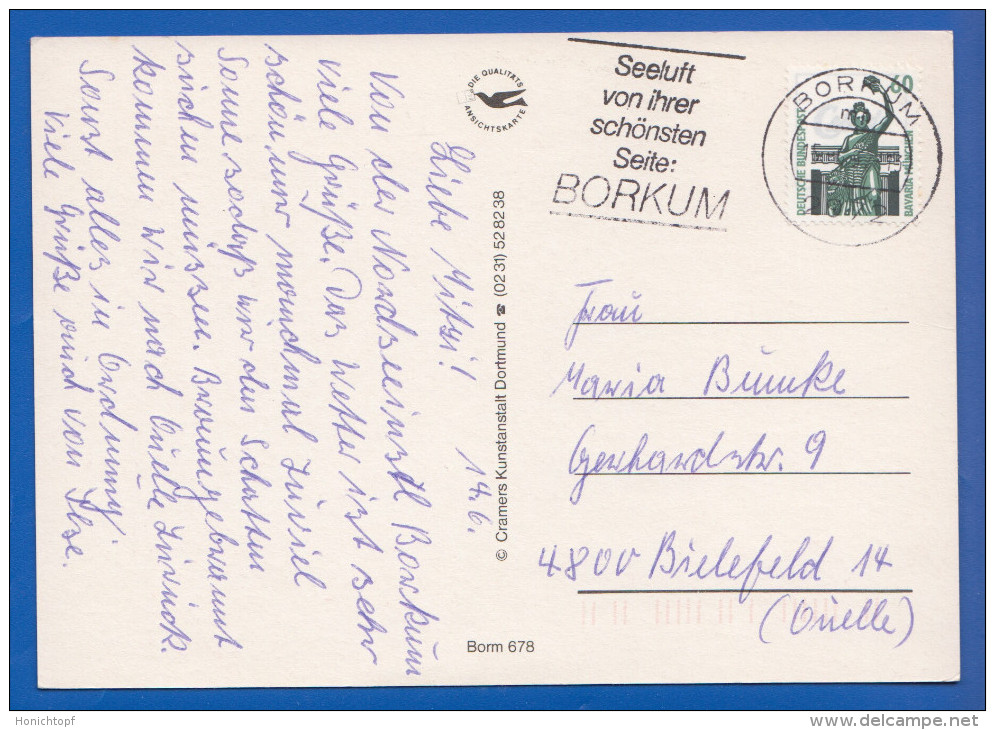 Liebe Mitzi! 14.6.
Von der Nordseeinsel Borkum
viele Grüße. Das Wetter ist sehr
schön, nur manchmal zuviel
Sonne, sodaß wir den Schatten
suchen müssen. Braungebrannt
kommen wir nach Quelle zurück.
Sonst alles in Ordnung
Viele Grüße auch von Ilse.
DIE QUALITÄTS
ANSICHTSKARTE
© Cramers Kunstanstalt Dortmund ☎ (0231) 528238
Borm 678
Seeluft
von ihrer
schönsten
Seite:
BORKUM
BORKUM
60
DEUTSCHE BUNDESPOST
BAVARIA MÜNCHEN
Frau
Maria Bumke
Gerhardstr. 9
4800 Bielefeld 14
(Quelle)
Honichtopf
www.delcampe.net